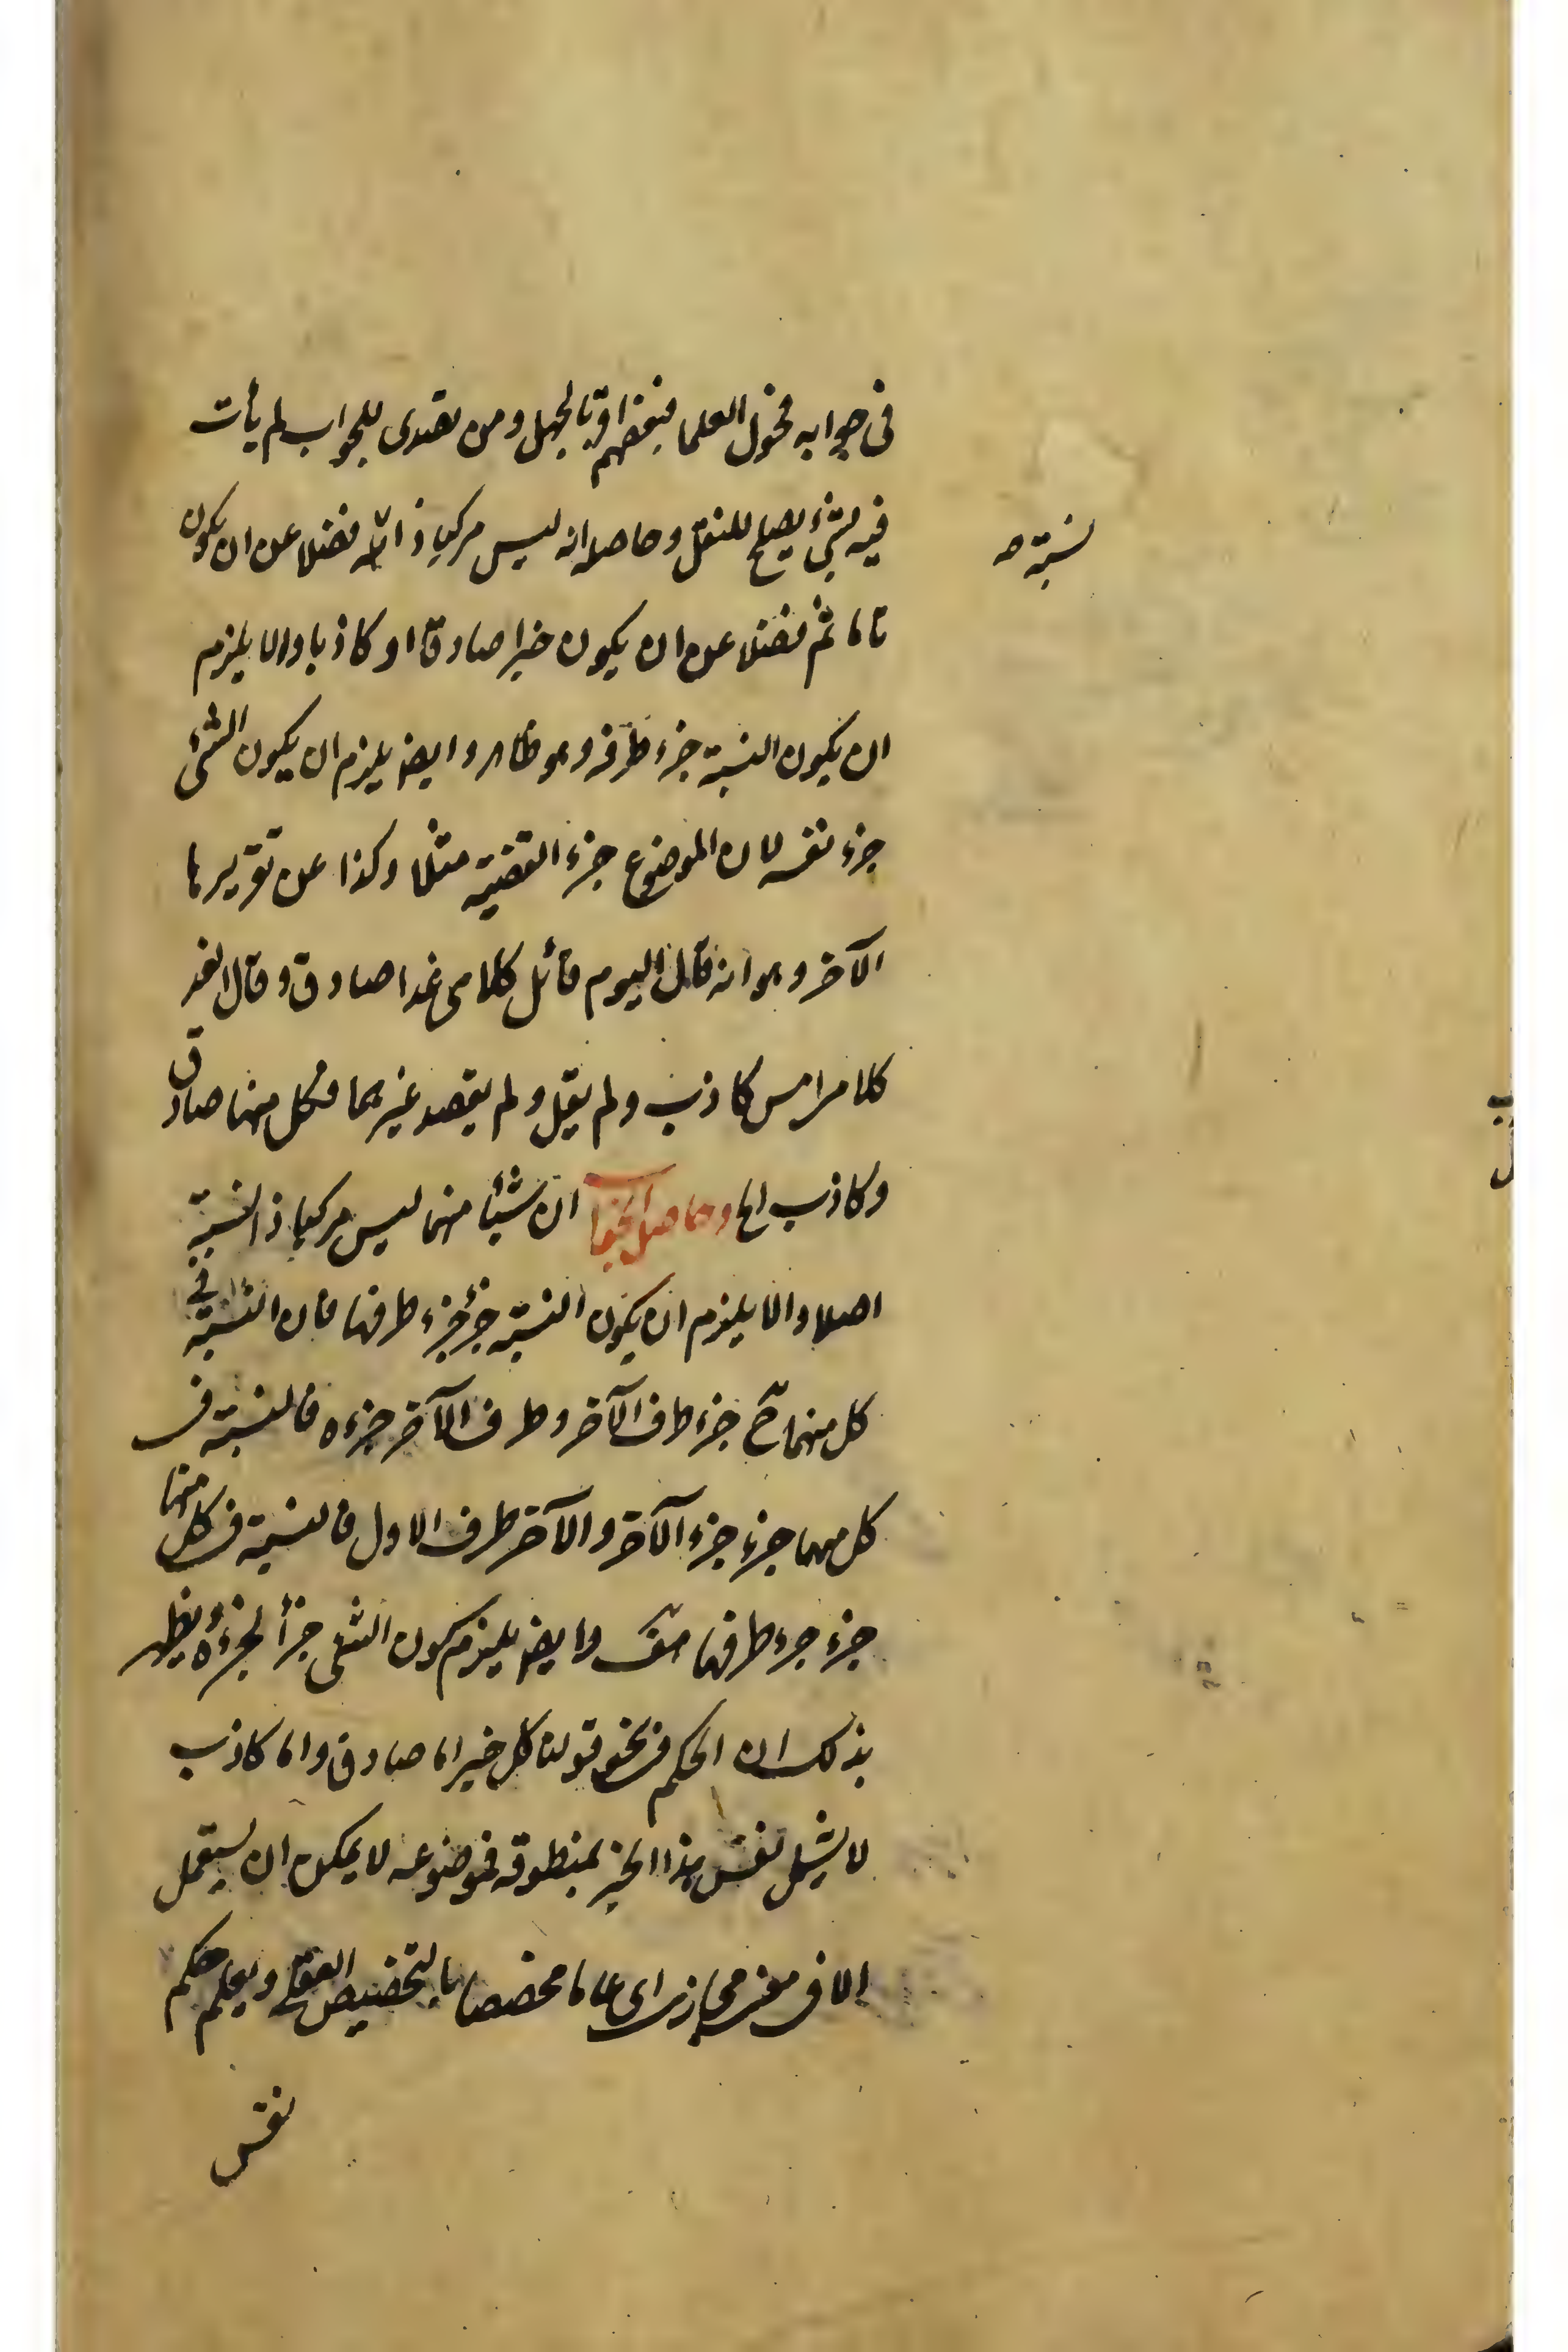 فى جوابه فحول العلما فبعضهم اقر بالجهل ومن تصدى للجواب لم يأت
فيه بشئ يصلح للنقل وحاصله انه ليس مركبا ذا فضلا عن ان يكون
تاما ثم فضلا عن ان يكون خبرا صادقا او كاذبا والا يلزم
ان يكون النسبة جزء طرفه وهو ظاهر وايضا يلزم ان يكون الشئ
جزء نفسه لان الموضوع جزء القضية مثلا وكذا عن تقريرها
الآخر وهو انه قال اليوم قائل كلامى غدا صادق وقال الغد
كلام امس كاذب ولم يقل ولم يقصد غيرهما فكل منهما صادق
وكاذب الخ وحاصل الجواب ان شيئا منهما ليس مركبا ذا النسبة
اصلا والا يلزم ان يكون النسبة جزء جزء طرفها فان النسبة فى
كل منهما ح جزء طرف الآخر وطرف الآخر جزءه فالنسبة فى
كل منهما جزء جزء الآخر والآخر طرف الاول فالنسبة فى كل منهما
جزء جزء طرفها هف وايضا يلزم كون الشئ جزأ لجزءه ويظهر
بذلك ان الحكم فى نحو قولنا كل خبر اما صادق واما كاذب
لا يشمل نفس هذا الخبر بمنطوقه فموضوعه لا يمكن ان يستعمل
الا فى معنى مجازى اى عاما مخصصا بالتخصيص العقلى ويعلم حكم
نفس
نسبة صه